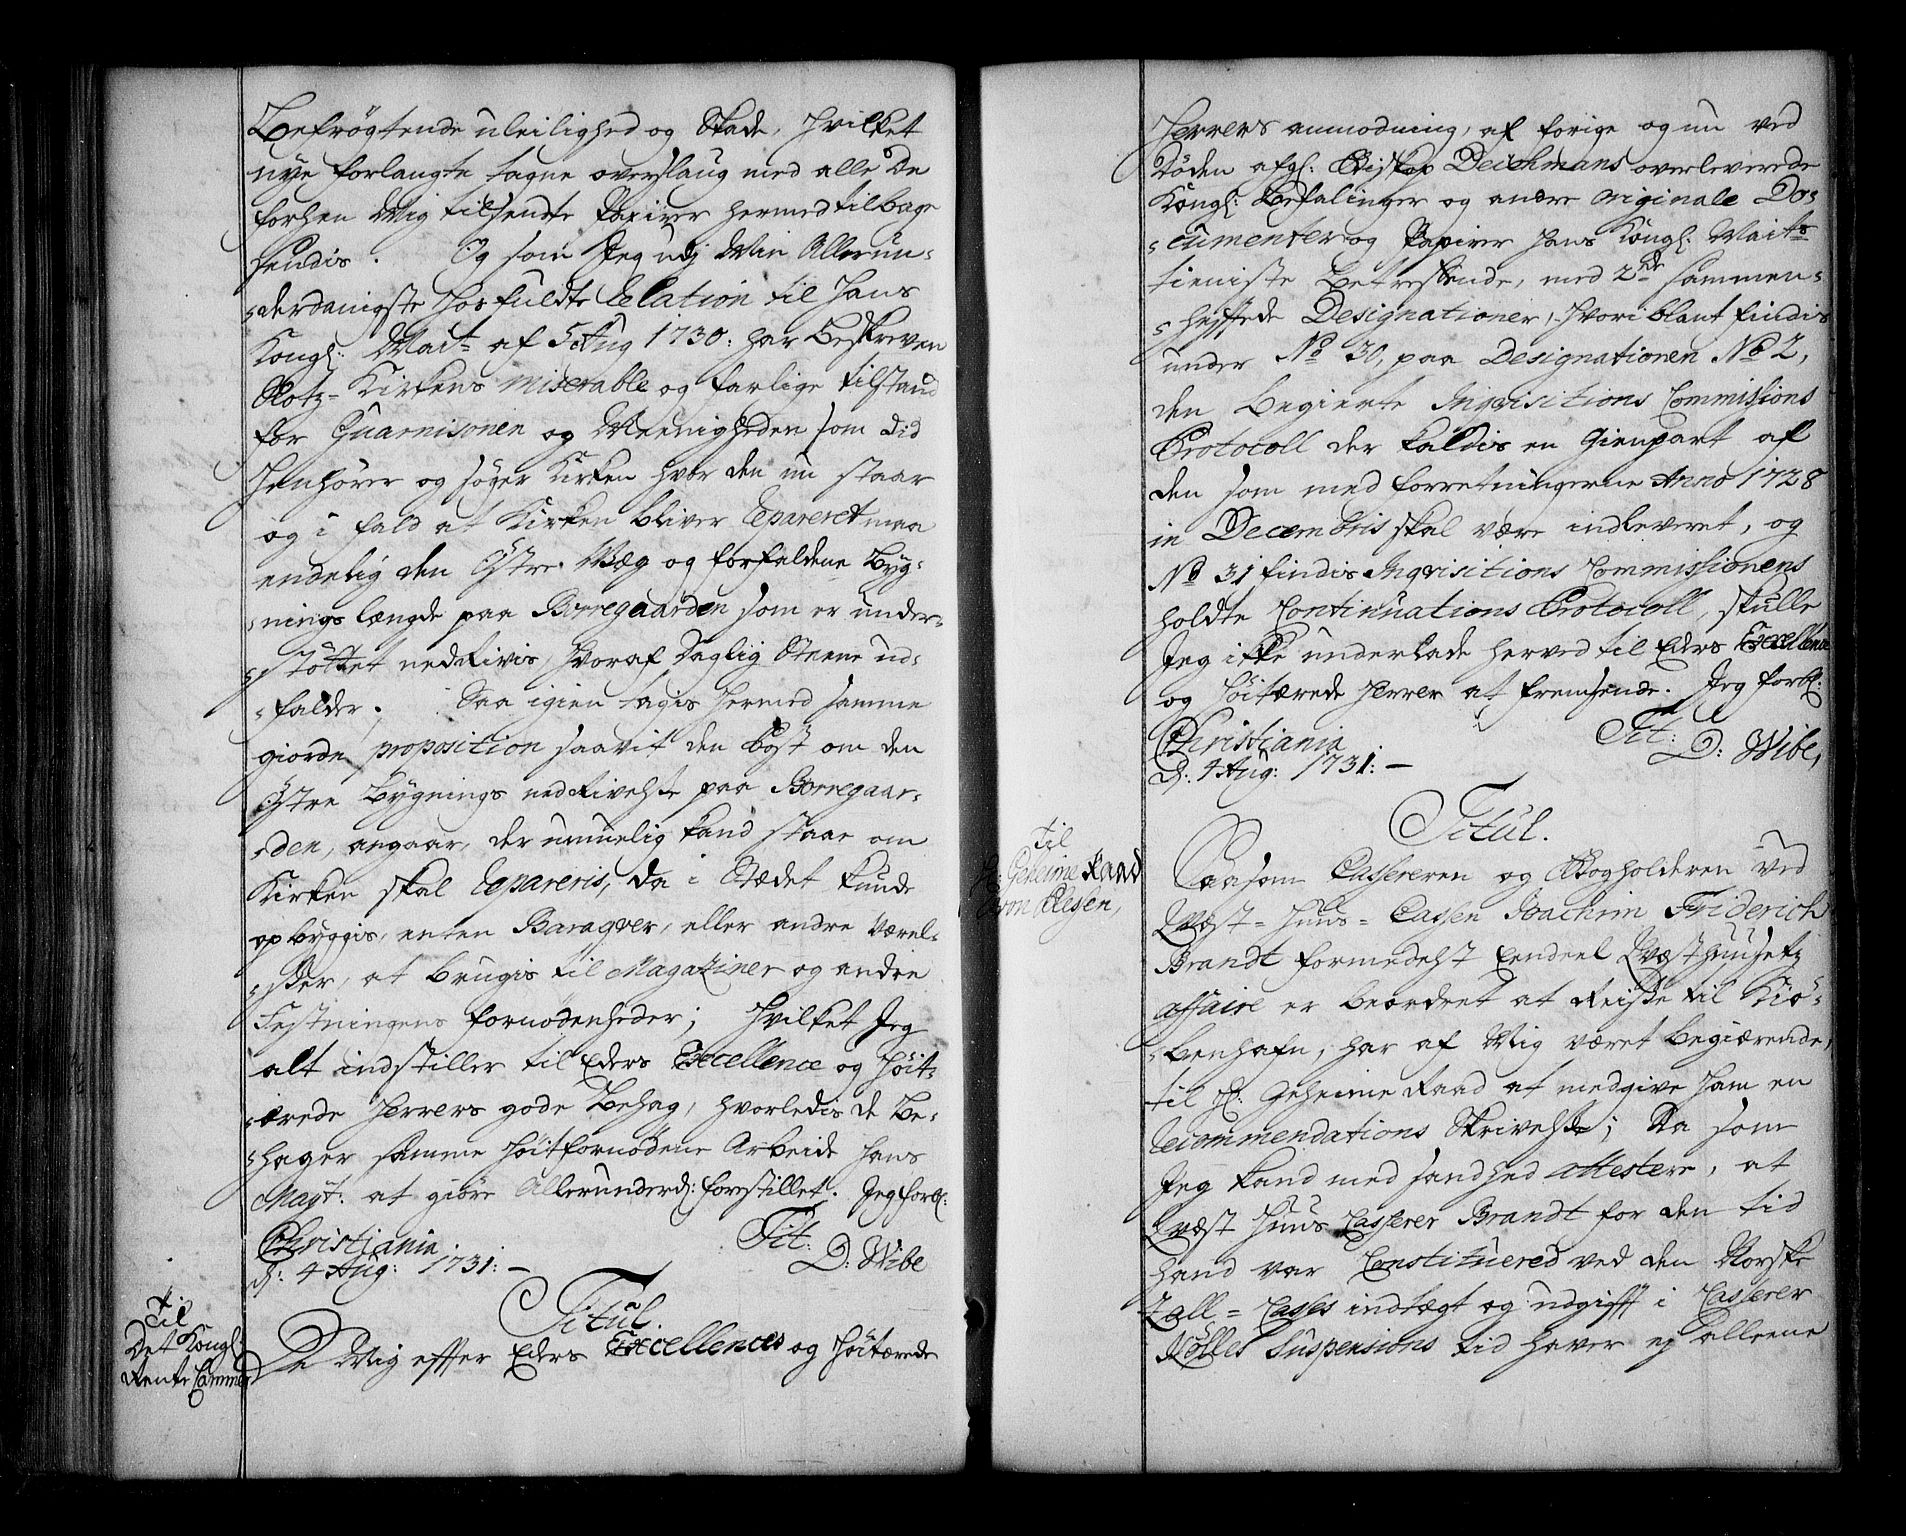 Befrøgtende uleilighed og Skade, hvilket
nye forlangte tagne overslaug med alle De
forhen Mig tilsendte Papirer hermed tilbage
sendis. Og som Jeg udj Min Allerun-
-derdanigste hosfuldte Relation til Hans
Kongl: Mait: af 5 Aug 1730: har Beskreven
Slotz-Kirkens miserable og farlige tilstand
for Guarnisonen og Meenigheden som did
Henhører og søger Kirken hvor den nu staar
og i fald at Kirken bliver Repareret maa
endelig den Østre Væg og forfaldene Byg-
-nings længde paa Borregaarden som er under-
-støttet nedrivis, hvoraf Daglig Steene ud-
-falder. Saa igien tagis hermed samme
giorde proposition saavit den Post om den
Østre Bygnings nedrivelse paa Borregaar-
-den, angaar, der umuelig kand staae om
Kirken skal Repareris, da i Stædet kunde
opbyggis, enten Baraqver, eller andre Værel-
-ser, at brugis til Magaziner og andre
Festningens fornødenheder; Hvilket Jeg
alt indstiller til Eders Excellence og Høit-
-ærede Herrers gode Behag, hvorledis de Be-
-hager samme høitfornødene Arbeide Hans
Mayt: at giøre Allerunderd: forestillet. Jeg forbl:
Christiania Tit:
d: 4 Aug: 1731:- D: Wibe
til
Det Kongl:
Rente Cammer
Titul.
Da Mig efter Eders Excellences og Høitærede
Herrers anmodning, af forige og nu ved
Døden afgl: Biskop Deichmans overleverede
Kongl: Befalinger og andre originale Do-
-cumenter og Papirer Hans Kongl: Maits
tieniste Betreffende, med 2de sammen-
-heftede Designationer, hvori blant findis
under No 30, paa Designationen No 2,
den begierte Inqvisitions Commissions
Protocoll der kaldis en Gienpart af
den som med forretningerne Anno 1728
in Decembris skal være indleveret, og
No 31 findis Inqvisitions Commissionens
holdte Continuations Protocoll, skulle
Jeg ikke underlade herved til Eders Excellence
og Høitærede Herrer at fremsende. Jeg forbl:
Christiania Tit:
d: 4 Aug: 1731:- D: Wibe,
til
H: Geheime Raad
von Plessen,
Titul.
Saasom Cassereren og Bogholderen ved
Qvæst-Huus-Cassen Joachim Friderich
Brandt formedelst Eendeel Qvæsthuusetz
affaire er beordret at Reise til Kiø-
-benhafn, har af Mig været begiærende,
til H: Geheime Raad at medgive ham en
Recommendations Skrivelse; Da som
Jeg kand med sandhed attestere, at
Qvæst Huus Casserer Brandt for den tid
hand var Constituered ved den Norske
Zall-Casses indtægt og udgift i Casserer
Nølles Suspensions tid haver ej alleene